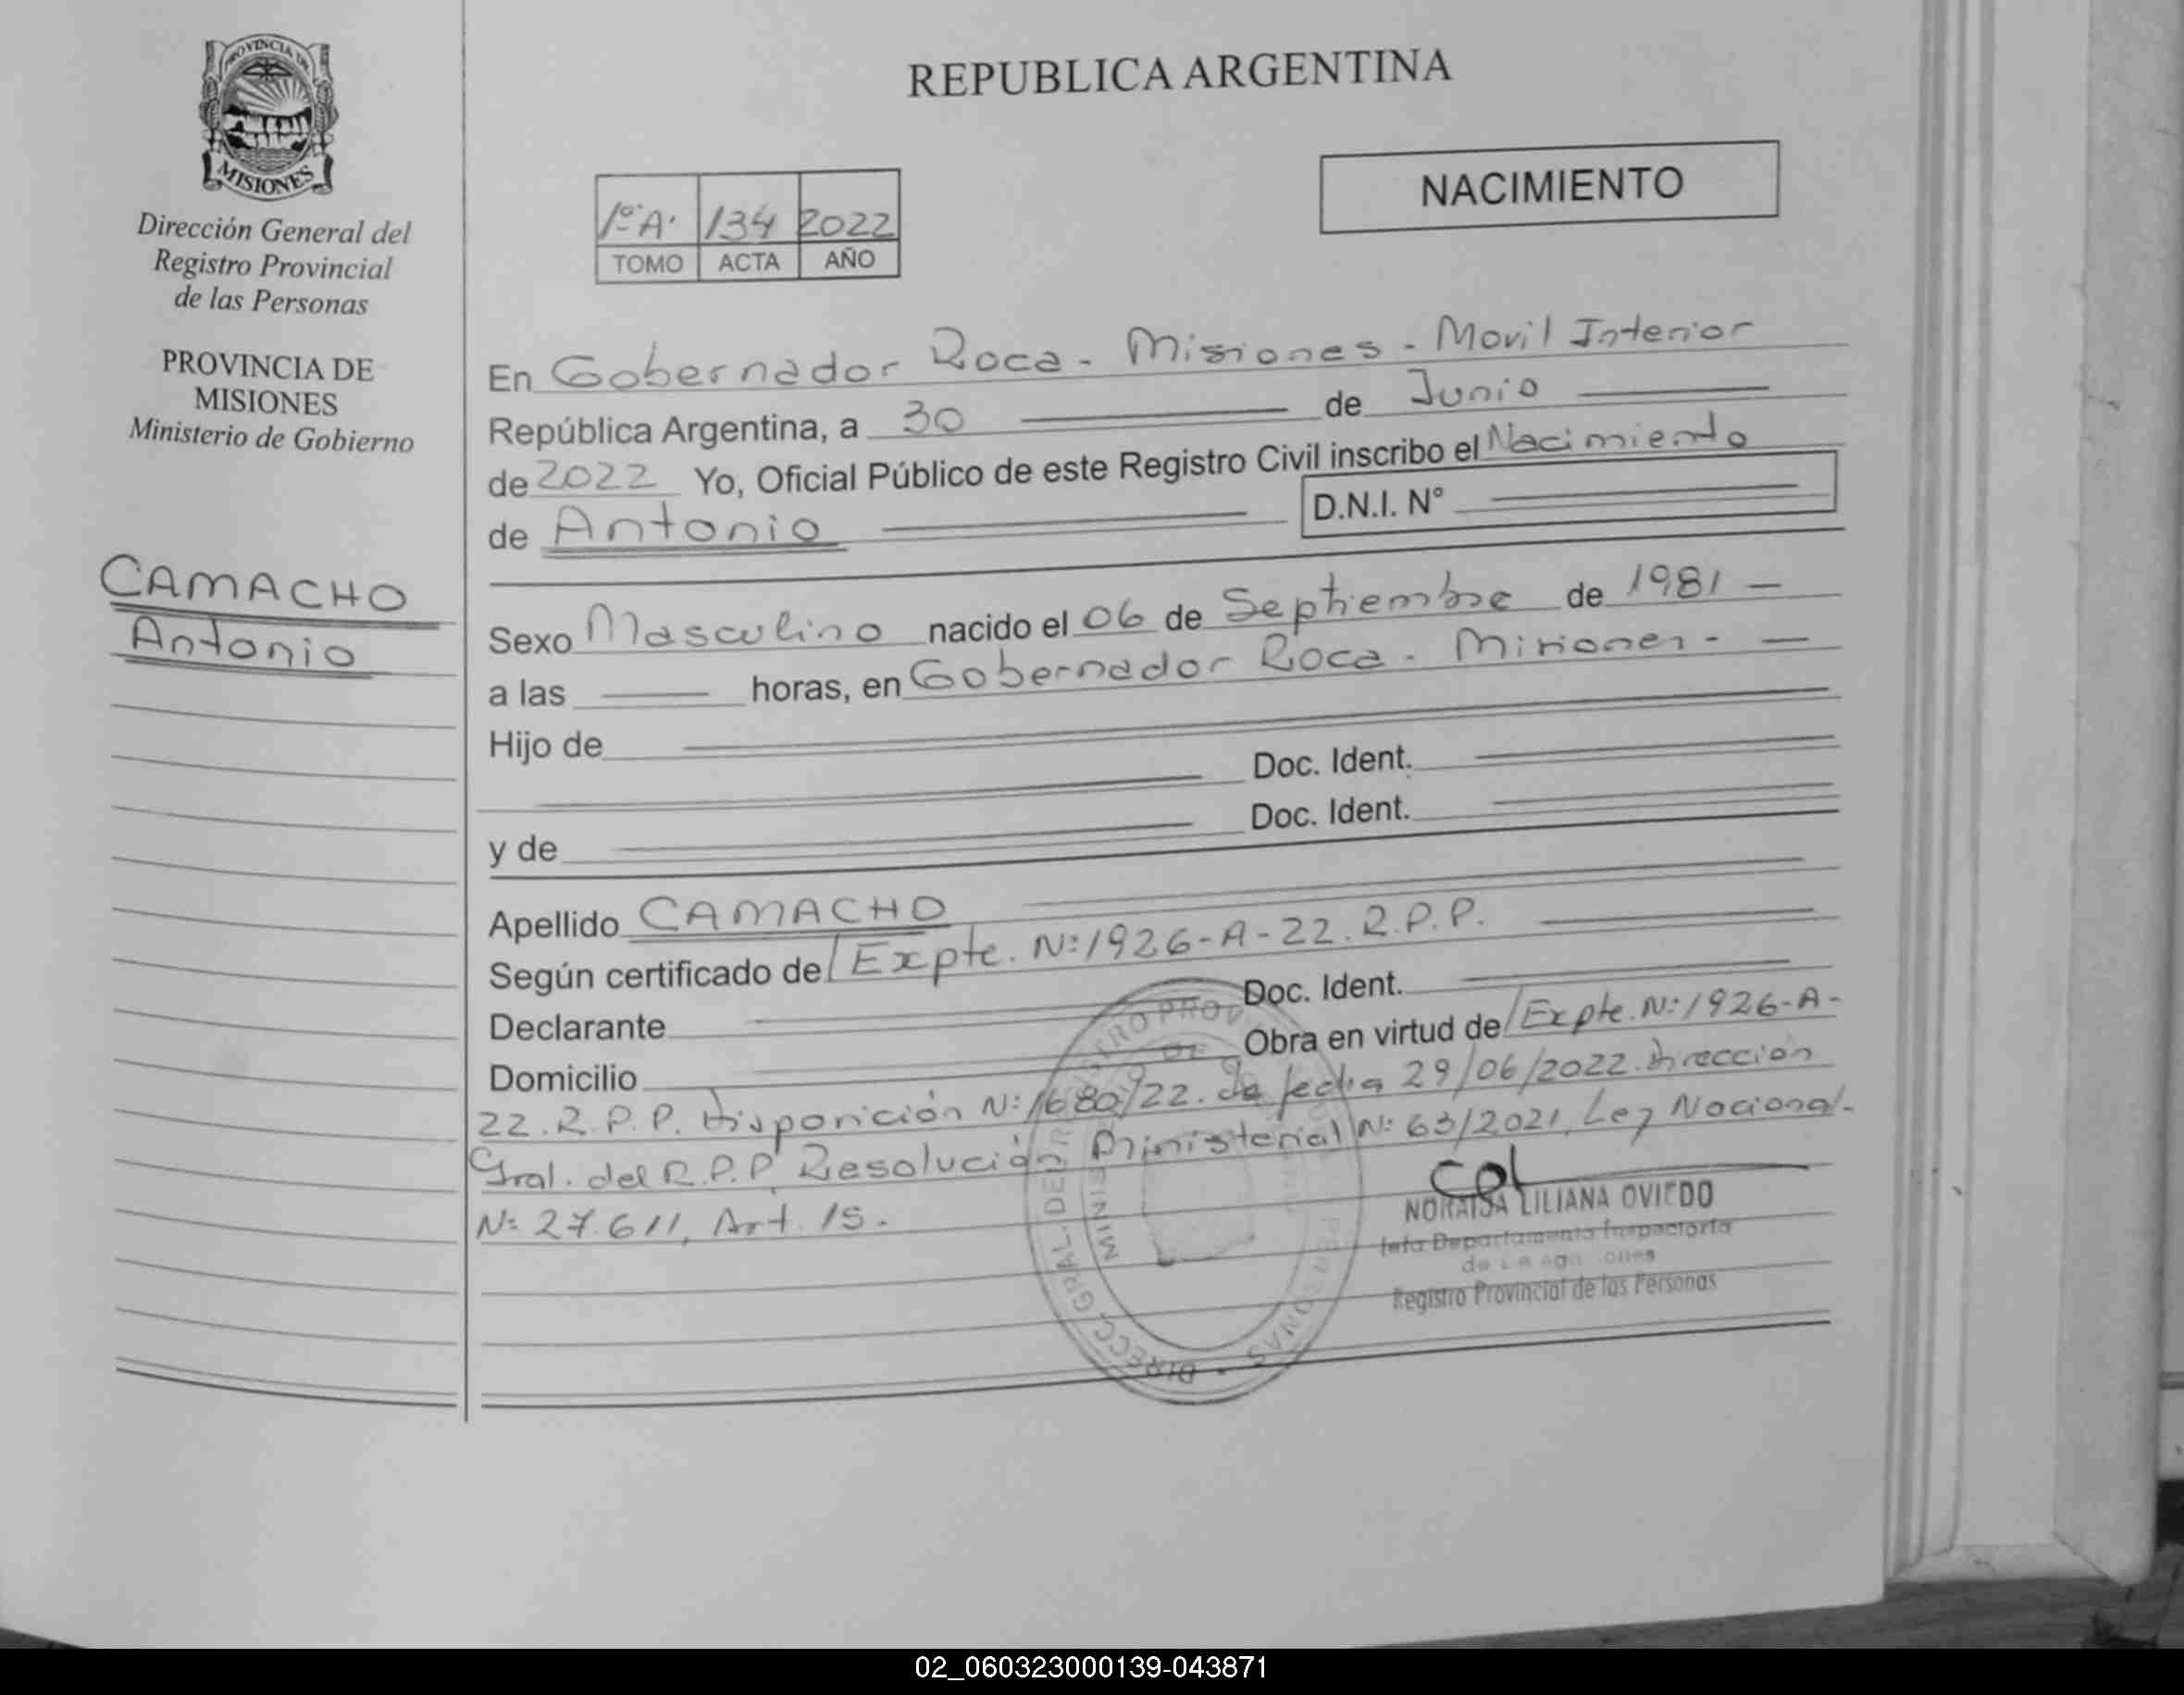 PROVINCIA DE
MISIONES
Dirección General del
Registro Provincial
de las Personas
PROVINCIA DE
MISIONES
Ministerio de Gobierno
CAMACHO
Antonio
REPUBLICA ARGENTINA
NACIMIENTO
1º A. 134 2022
TOMO ACTA AÑO
En Gobernador Roca - Misiones - Movil Interior
República Argentina, a 30 de Junio
de 2022 Yo, Oficial Público de este Registro Civil inscribo el Nacimiento
de Antonio D.N.I. N°
Sexo Masculino nacido el 06 de Septiembre de 1981 -
a las horas, en Gobernador Roca - Misiones -
Hijo de
Doc. Ident.
y de Doc. Ident.
Apellido CAMACHO
Según certificado de/ Expte. N:1926-A-22. R.P.P.
Declarante Doc. Ident.
Domicilio Obra en virtud de/Expte. N:1926-A-
22. R.P.P. Disposición N:1680/22. de fecha 29/06/2022. Dirección
Gral. del R.P.P, Resolución Ministerial N: 63/2021, Ley Nacional
N: 27.611, Art. 15.
NORAISA LILIANA OVIEDO
Jefa Departamento Inspectoría
Registro Provincial de las Personas
DIRECC. GRAL. DEL REGISTRO PROV PERSONAS
02_060323000139-043871